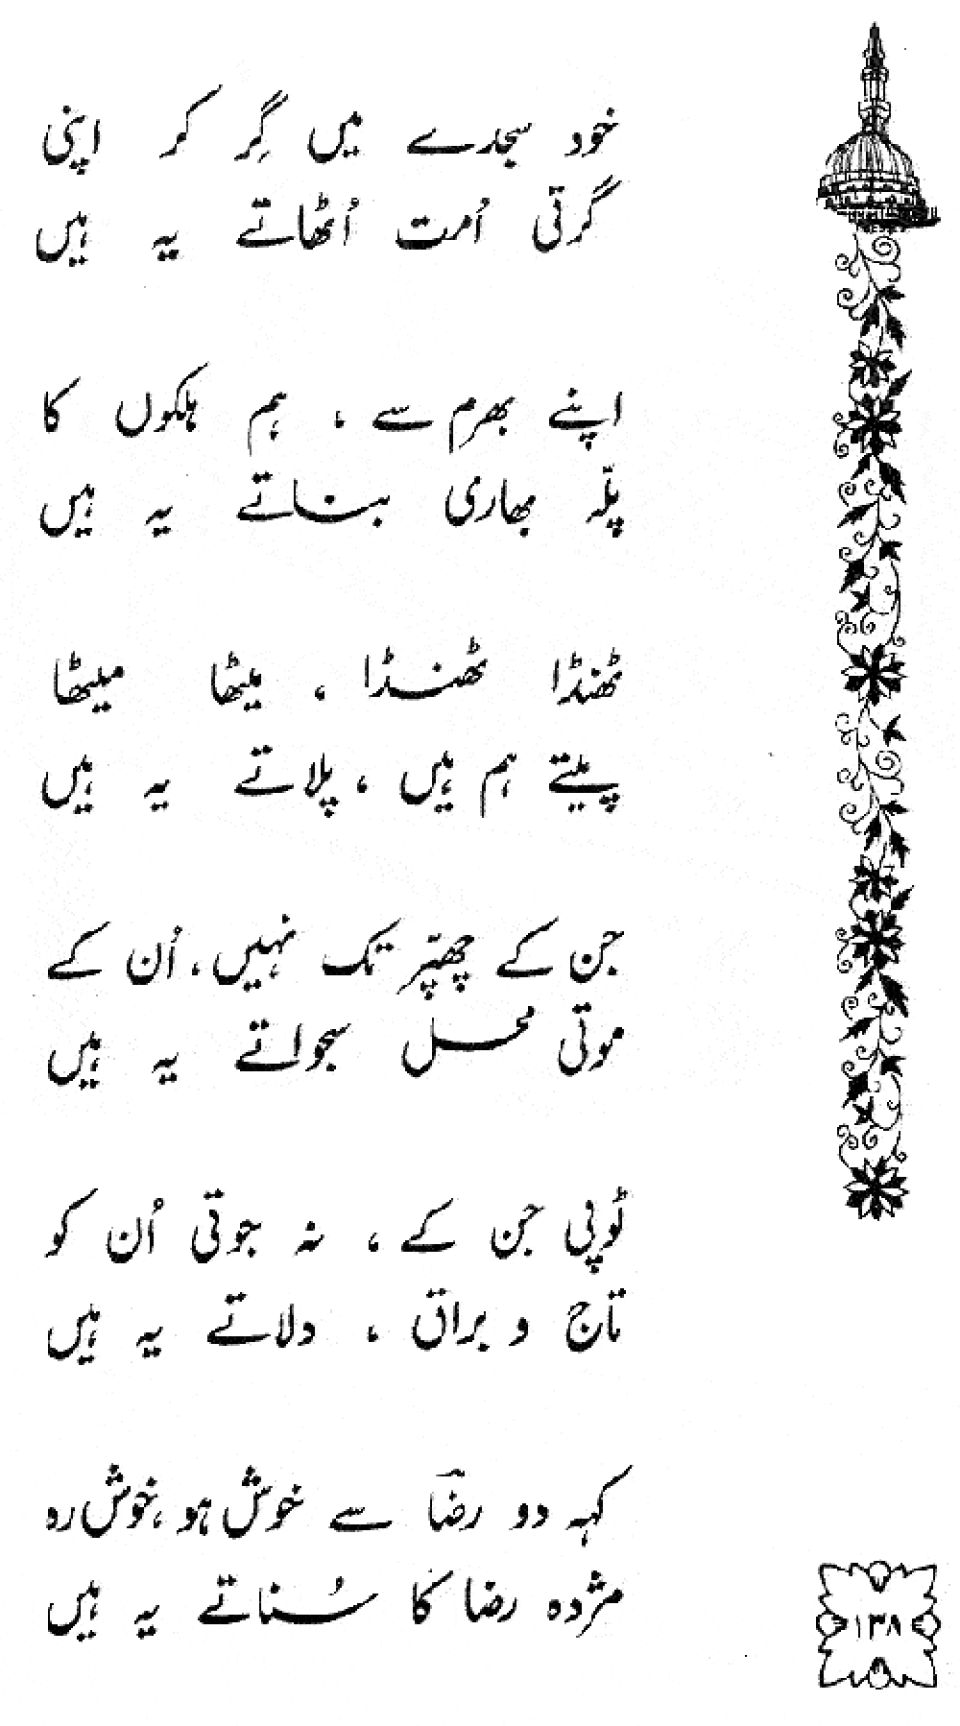 خود سجدے میں گِر کر اپنی
گرتی اُمت اُٹھاتے یہ ہیں
اپنے بھرم سے ، ہم ہلکوں کا
پلّہ بھاری بناتے یہ ہیں
ٹھنڈا ٹھنڈا ، میٹھا میٹھا
پیتے ہم ہیں ، پلاتے یہ ہیں
جن کے چھپّر تک نہیں ، اُن کے
موتی محل سجواتے یہ ہیں
ٹوپی جن کے ، نہ جوتی اُن کو
تاج و براق ، دلاتے یہ ہیں
کہہ دو رضاؔ سے خوش ہو ، خوش رہ
مژدہ رضا کا سُناتے یہ ہیں
۱۳۸